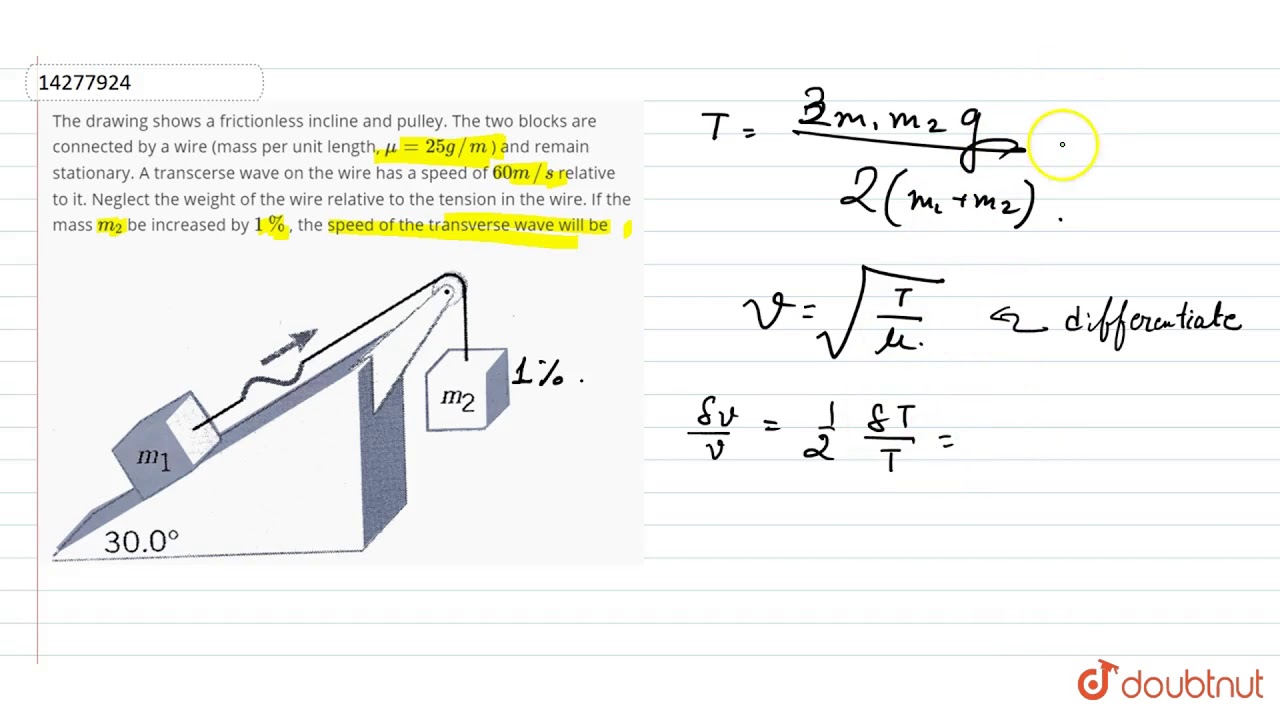 14277924
The drawing shows a frictionless incline and pulley. The two blocks are
connected by a wire (mass per unit length, μ = 25g/m ) and remain
stationary. A transcerse wave on the wire has a speed of 60m/s relative
to it. Neglect the weight of the wire relative to the tension in the wire. If the
mass m₂ be increased by 1 %, the speed of the transverse wave will be
m₁
m₂
1%.
30.0°
T = 3m₁m₂g / 2(m₁+m₂).
v = √(T/μ.) ← differentiate
δv/v = 1/2 δT/T =
doubtnut